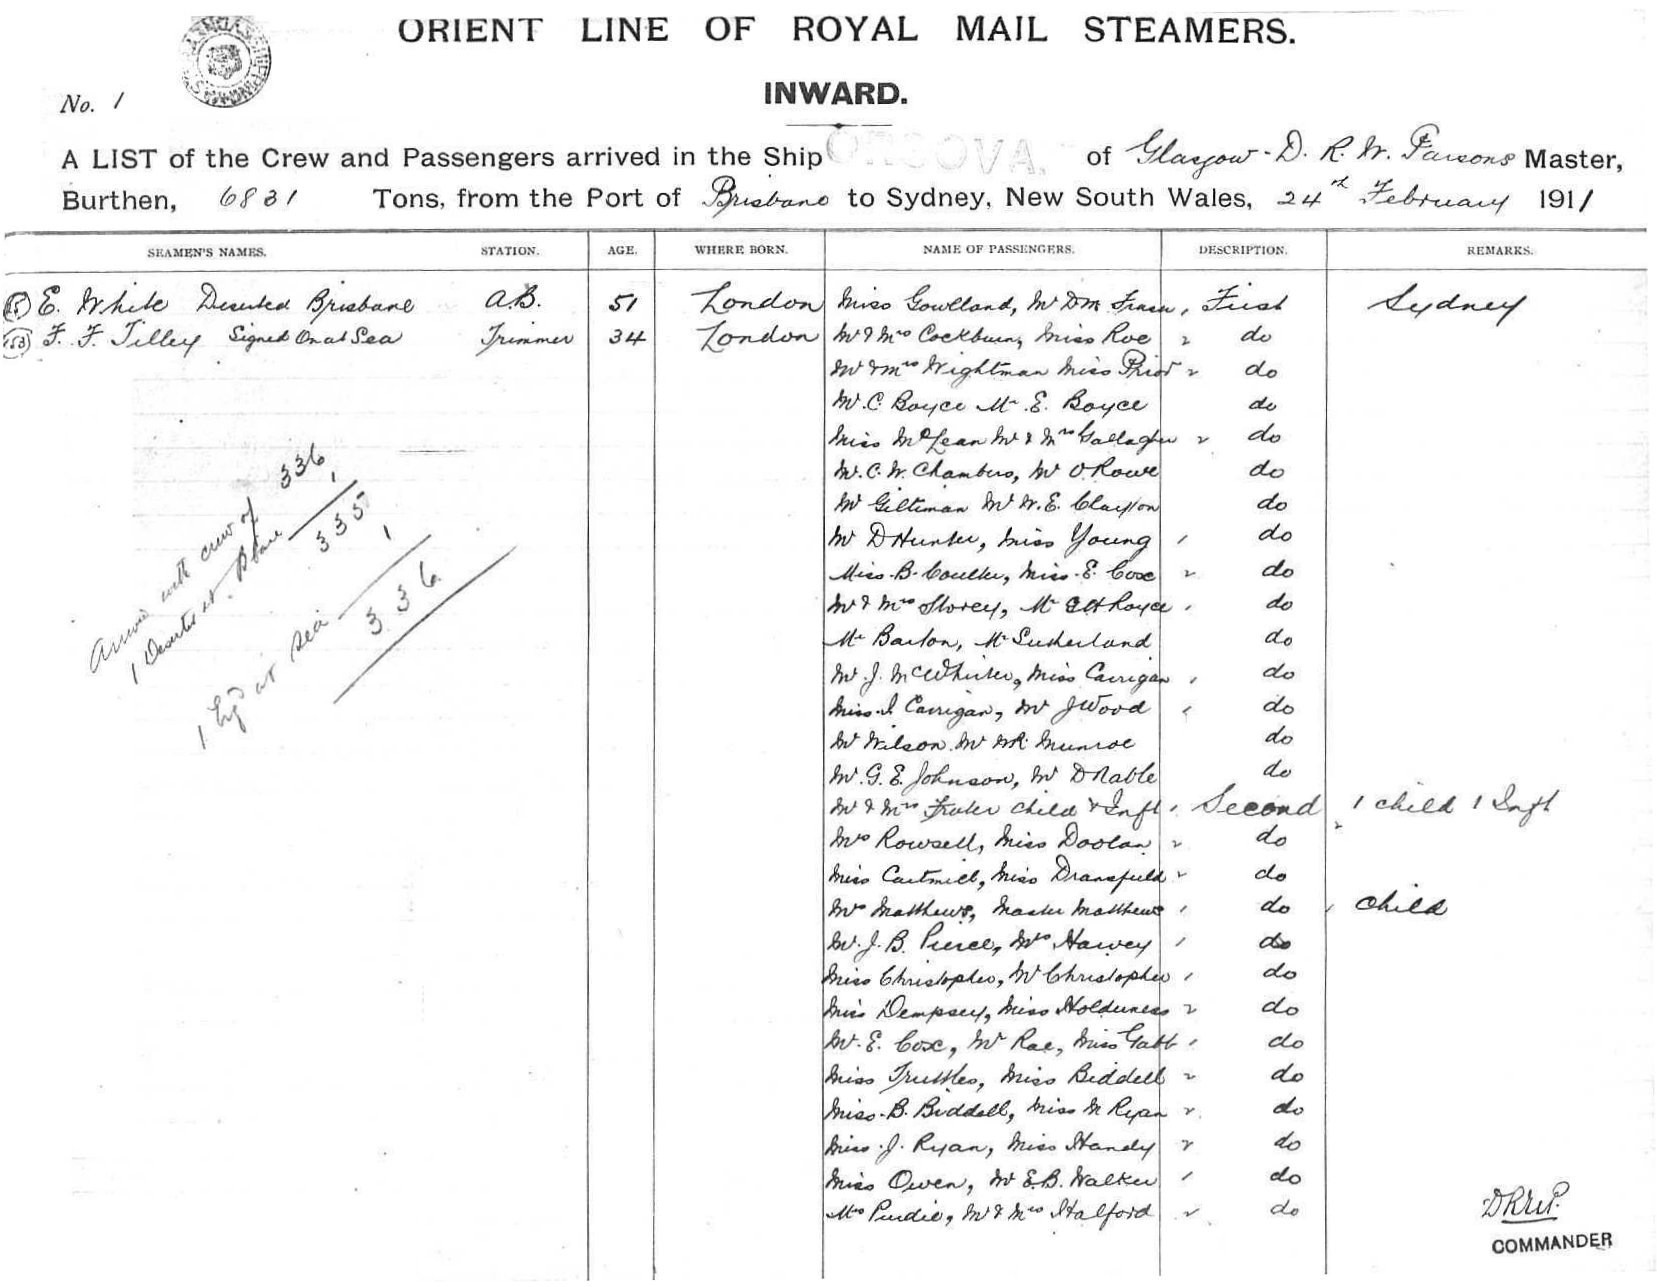 ORIENT LINE OF ROYAL MAIL STEAMERS.
INWARD.
No. 1
A LIST of the Crew and Passengers arrived in the Ship of Glasgow - D. R. W. Parsons Master,
Burthen, 6831 Tons, from the Port of Brisbane to Sydney, New South Wales, 24th February 1911
SEAMEN'S NAMES. STATION. AGE. WHERE BORN. NAME OF PASSENGERS. DESCRIPTION. REMARKS.
E. White Deserted Brisbane A.B. 51 London Miss Gowlland, Mr D M Fraser, First Sydney
(153) F. F. Tilley Signed On at Sea Trimmer 34 London Mr & Mrs Cockburn, Miss Roe do
Mr & Mrs Wightman Miss Prior do
Mr C Boyce Mr E. Boyce do
Miss McLean Mr & Mrs Gallagher do
Mr. C. W. Chambers, Mr O. Rowe do
Mr Giltinan Mr W. E. Clayton do
Mr D Hunter, Miss Young do
Miss B. Coulter, Miss E. Cox do
Mr & Mrs Storey, Mr Royce do
Mr Barton, Mr Sutherland do
Mr. J. McWhirter, Miss Carrigan do
Miss I Carrigan, Mr J Wood do
Mr Wilson Mr Munroe do
Mr. G. E. Johnson, Mr D Nable do
Mr & Mrs Frater Child & Inft Second 1 Child 1 Inft
Mrs Rowsell, Miss Doolan do
Miss Cartmill, Miss Dransfield do
Mrs Matthews, Master Matthews do Child
Mr. J. B. Pierce, Mrs Harvey do
Miss Christopher, Mr Christopher do
Miss Dempsey, Miss Holdsness do
Mr. E. Cox, Mr Rae, Miss Gabb do
Miss Truttles, Miss Biddell do
Miss B. Biddell, Miss M Ryan do
Miss J. Ryan, Miss Handy do
Miss Owen, Mr E. B. Walker do
Mrs Purdie, Mr & Mrs Halford do
Arrived with crew of 336
1 Deserter at Bbane 1
335
1 Eng'd at sea 1
336
D.R.W.P.
COMMANDER